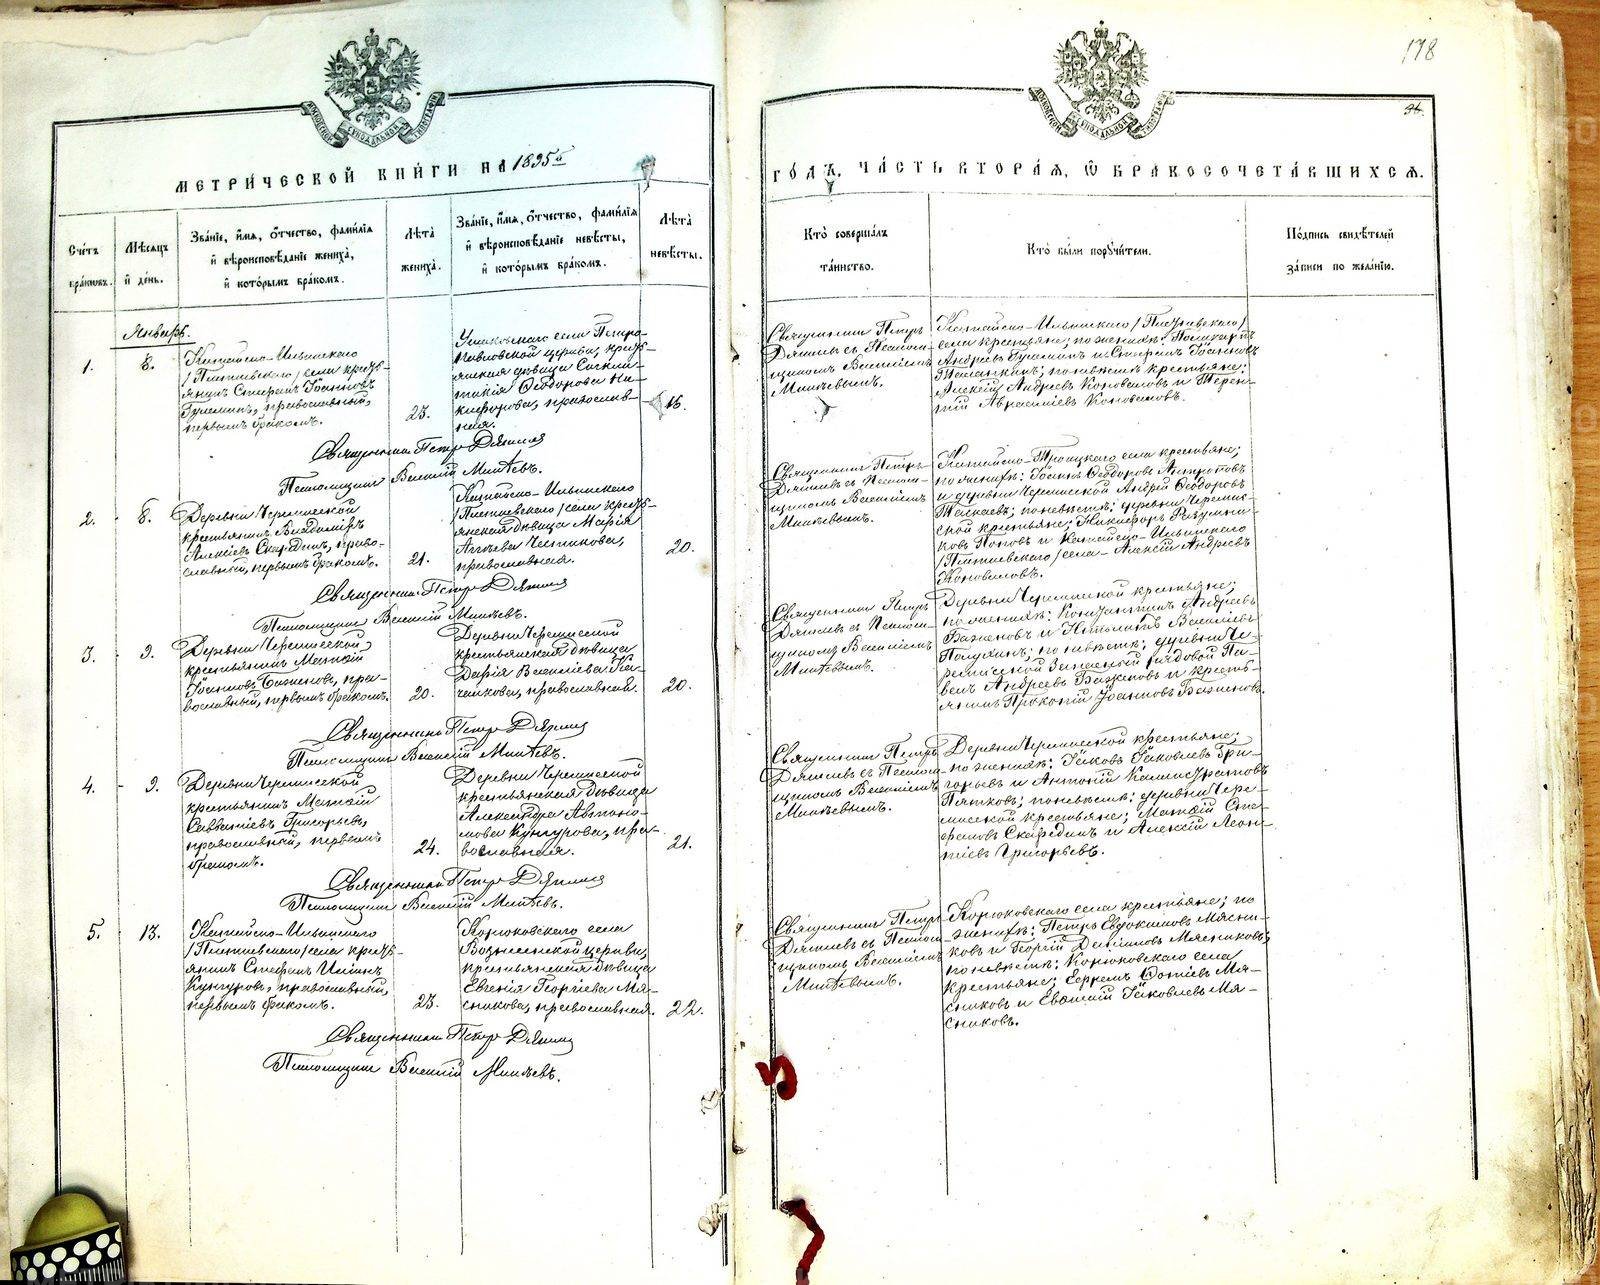 178
96.
МОСКОВСКОЙ СѴНОДАЛЬНОЙ ТИПОГРАФІИ
МОСКОВСКОЙ СѴНОДАЛЬНОЙ ТИПОГРАФІИ
МЕТРИ́ЧЕСКОЙ КНИ́ГИ НА 1895й
ГО́ДЪ, ЧА́СТЬ ВТОРА́Я, Ѽ БРАКОСОЧЕТА́ВШИХСЯ.
Сче́тъ
бра́ковъ.
Мѣ́сяцъ
и҆ де́нь.
Зва́нїе, и҆́мя, ѻ҆́тчество, фами́лїя
и҆ вѣроисповѣ́данїе жениха̀,
и҆ кото́рымъ бра́комъ.
Лѣ́та
жениха̀.
Зва́нїе, и҆́мя, ѻ҆́тчество, фами́лїя
и҆ вѣроисповѣ́данїе невѣ́сты,
и҆ кото́рымъ бра́комъ.
Лѣ́та
невѣ́сты.
Кто̀ соверша́лъ
та́инство.
Кто̀ бы́ли порꙋчи́тели.
По́дпись свидѣ́телей
за́писи по жела́нїю.
Январь.
1.
8.
Катайско-Ильинскаго
села кресть-
янинъ Стефанъ Іоанновъ
православный,
первымъ бракомъ.
23.
села Петро-
павловской церкви, кресть-
янская дѣвица
Ѳеодорова Ни-
кифорова, православ-
ная.
16.
Священникъ Петръ
съ Псалом-
щикомъ Василіемъ
Катайско-Ильинскаго
села крестьяне; по женихѣ:
Андреевъ и Стефанъ Іоанновъ
по невѣстѣ крестьяне:
Алексѣй Андреевъ Коноваловъ и Терен-
тій Коноваловъ.
Священникъ Петръ
Псаломщикъ Василій
2.
8.
Деревни Черемисской
крестьянинъ Владиміръ
Алексіевъ Скарединъ, право-
славный, первымъ бракомъ.
21.
Катайско-Ильинскаго
села кресть-
янская дѣвица Марія
православная.
20.
Священникъ Петръ
съ Псалом-
щикомъ Василіемъ
Катайско-Троицкаго села крестьяне;
по женихѣ: Іоаннъ Ѳеодоровъ Антроповъ
и деревни Черемисской Андрей Ѳеодоровъ
по невѣстѣ: деревни Черемис-
ской крестьяне; Никифоръ
Поповъ и Катайско-Ильинскаго
села Алексій Андреевъ
Коноваловъ.
Священникъ Петръ
Псаломщикъ Василій
3.
9.
Деревни Черемисской
крестьянинъ Матѳій
Іоанновъ Баженовъ, пра-
вославный, первымъ бракомъ.
20.
Деревни Черемисской
крестьянская дѣвица
Дарія Василіева Ка-
чалкова, православная.
20.
Священникъ Петръ
съ Псалом-
щикомъ Василіемъ
Деревни Черемисской крестьяне;
по женихѣ: Константинъ Андреевъ
Баженовъ и Василіевъ
по невѣстѣ: деревни Че-
ремисской Запасный рядовой Па-
велъ Андреевъ Баженовъ и кресть-
янинъ Прокопій Іоанновъ Баженовъ.
Священникъ Петръ
Псаломщикъ Василій
4.
9.
Деревни Черемисской
крестьянинъ Матѳій
Савватіевъ Григорьевъ,
православный, первымъ
бракомъ.
24.
Деревни Черемисской
крестьянская дѣвица
Александра Автоно-
мова Кунгурова, пра-
вославная.
21.
Священникъ Петръ
съ Псалом-
щикомъ Василіемъ
Деревни Черемисской крестьяне;
по женихѣ: Іаковъ Іаковлевъ Гри-
горьевъ и Антоній Каллистратовъ
Пятковъ; по невѣстѣ: деревни Чере-
мисской крестьяне; Матѳій Сте-
фановъ Скарединъ и Алексій Леон-
тіевъ Григорьевъ.
Священникъ Петръ
Псаломщикъ Василій
5.
13.
Катайско-Ильинскаго
села кресть-
янинъ Стефанъ Иліинъ
Кунгуровъ, православный,
первымъ бракомъ.
23.
Корюковскаго села
Вознесенской церкви,
крестьянская дѣвица
Евгенія Георгіева Мя-
сникова, православная.
22.
Священникъ Петръ
съ Псалом-
щикомъ Василіемъ
Корюковскаго села крестьяне; по
женихѣ: Петръ Евдокимовъ Мясни-
ковъ и Георгій Мясниковъ;
по невѣстѣ: Корюковскаго села
крестьяне; Ефремъ Фотіевъ Мя-
сниковъ и Іаковлевъ Мя-
сниковъ.
Священникъ Петръ
Псаломщикъ Василій